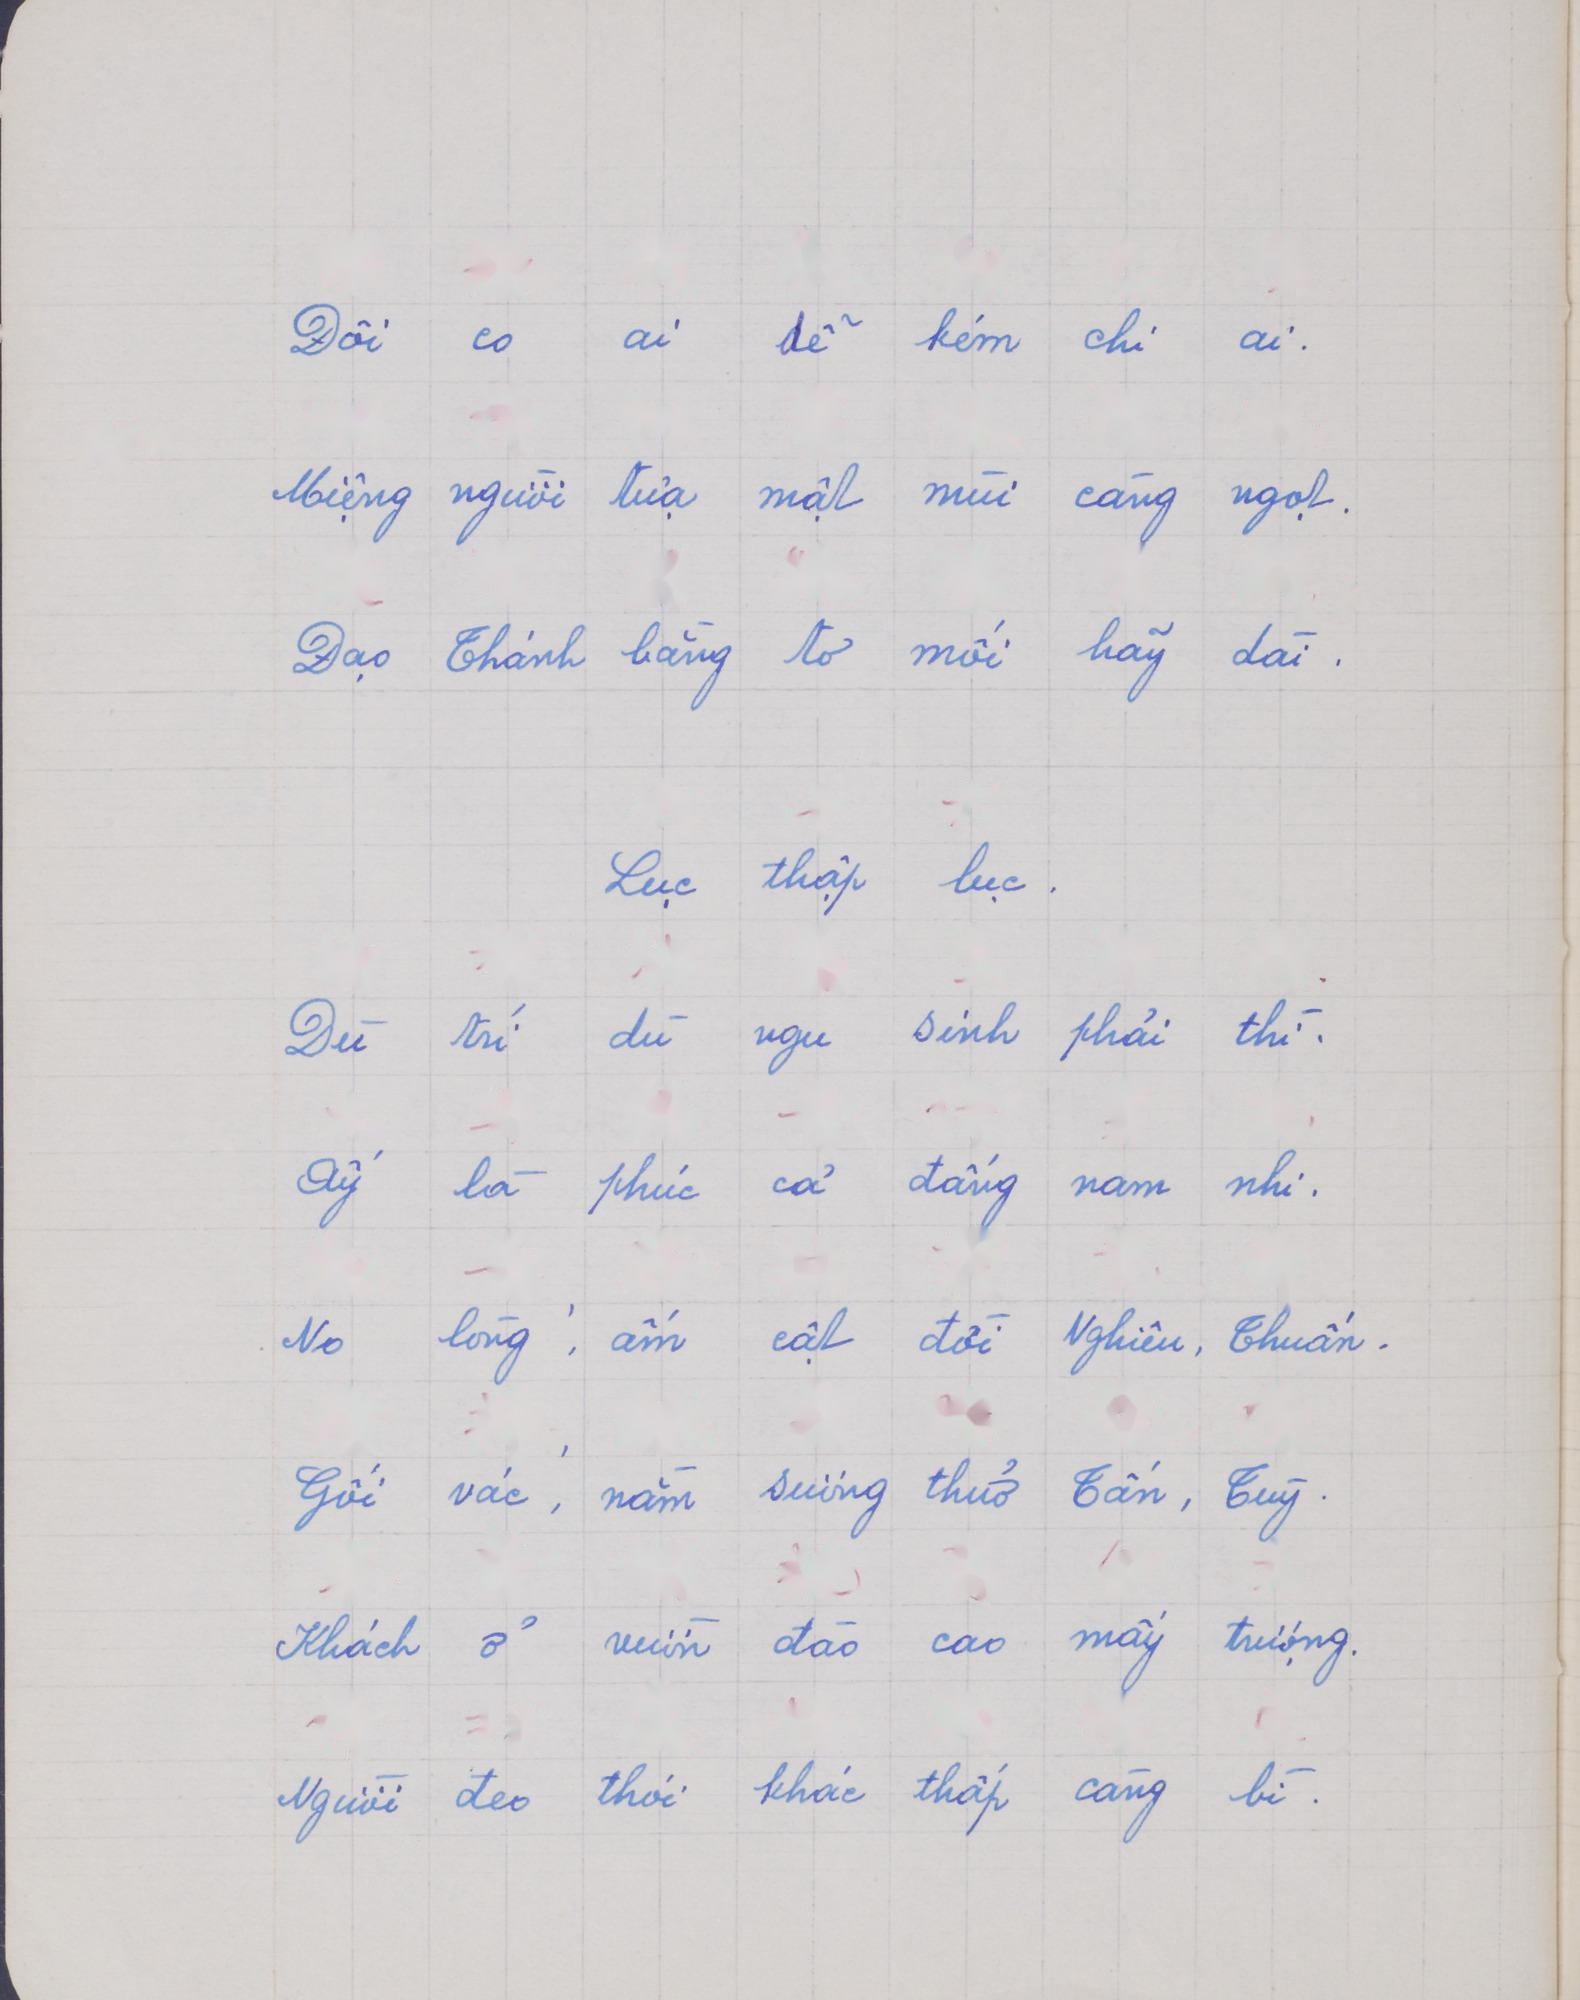 Đôi co ai dễ kém chi ai.
Miệng người tựa mật mùi càng ngọt.
Đạo Thánh bằng tơ mối hãy dài.
Lục thập lục.
Dù trí dù ngu sinh phải thì.
Ấy là phúc cả đấng nam nhi.
No lòng, ấm cật đời Nghiêu, Thuấn.
Gối vác, nằm sương thuở Tấn, Tuỳ.
Khách ở vườn đào cao mấy trượng.
Người đeo thói khác thấp càng bì.